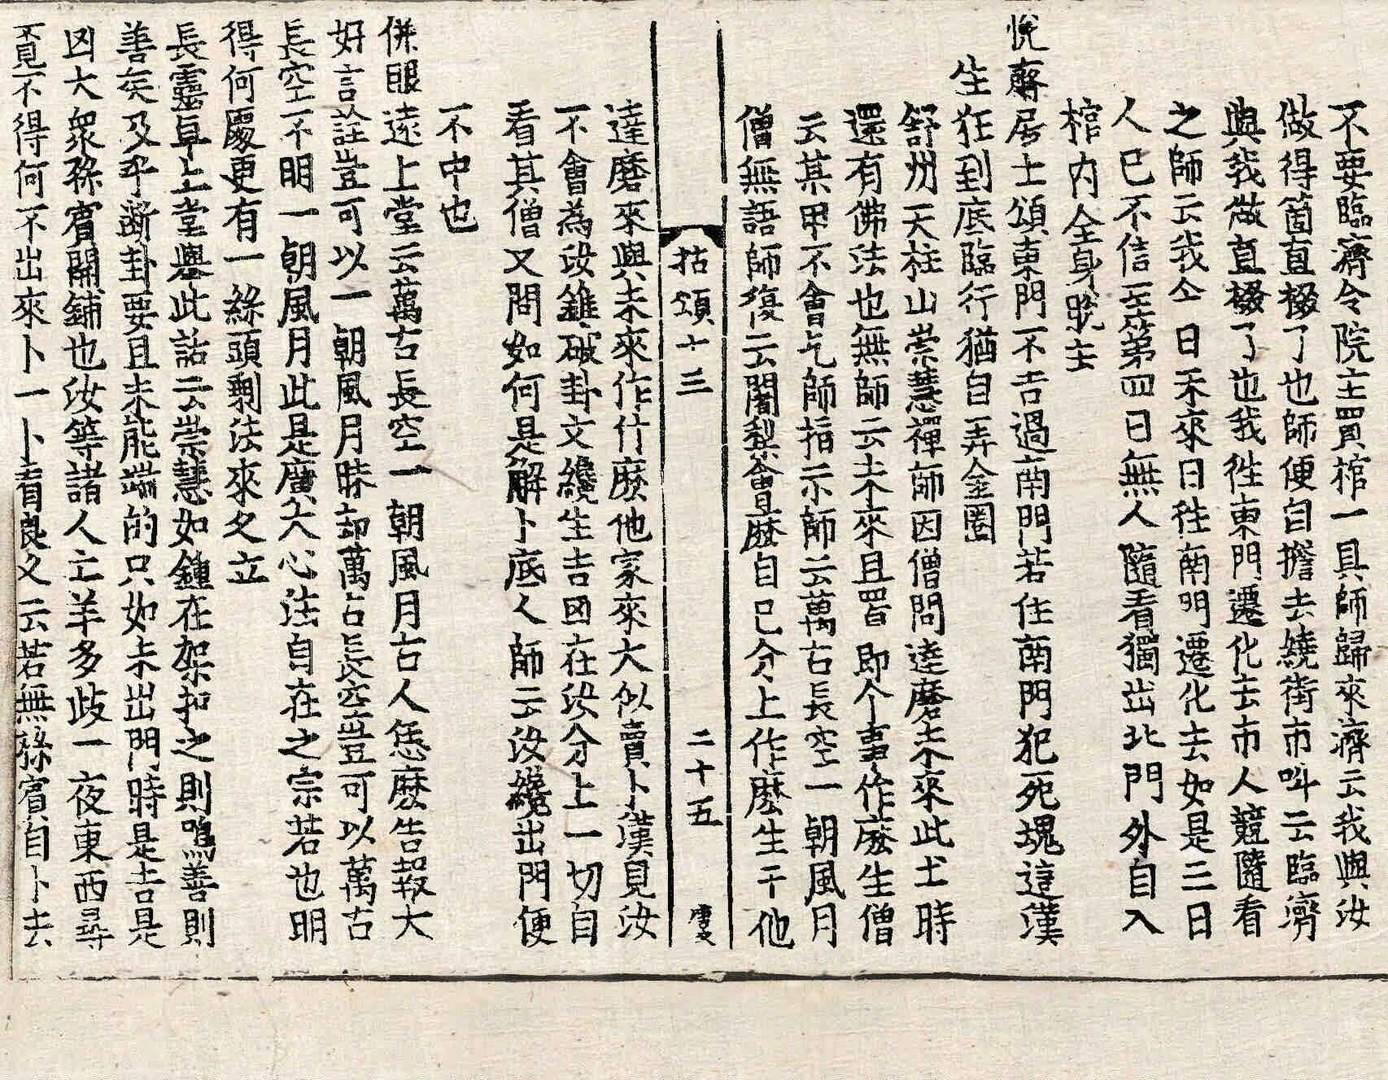 不要臨濟令院主買棺一具師歸來濟云我與汝
做得箇直掇了也師便自擔去繞街市叫云臨濟
與我做直掇了也我徃東門遷化去市人競隨看
之師云我今日未來日徃南門遷化去如是三日
人已不信至第四日無人隨看獨出北門外自入
棺內全身脫去
悅齋居士頌東門不吉過南門若住南門犯死塊這漢
生狂到底臨行猶自弄金圈
舒州天柱山崇慧禪師因僧問達磨未來此土時
還有佛法也無師云未來且置即今事作麽生僧
云某甲不會乞師指示師云萬古長空一朝風月
僧無語師復云闍梨會麽自己分上作麽生干他
拈頌十三 二十五
達磨來與未來作什麽他家來大似賣卜漢見汝
不會為汝錐破卦文纔生吉凶在汝分上一切自
看其僧又問如何是解卜底人師云汝纔出門便
不中也
併眼遠上堂云萬古長空一朝風月古人恁麽告報大
好言詮豈可以一朝風月昧却萬古長空豈可以萬古
長空不明一朝風月此是廣大心法自在之宗若也明
得何處更有一絲頭剩法來久立
長靈卓上堂擧此話云崇慧如鍾在架扣之則鳴善則
善矣及乎断卦要且未能端的只如未出門時是吉是
凶大衆孫賓開鋪也汝等諸人亡羊多歧一夜東西尋
覓不得何不出來卜一卜看良久云若無孫賓自卜去